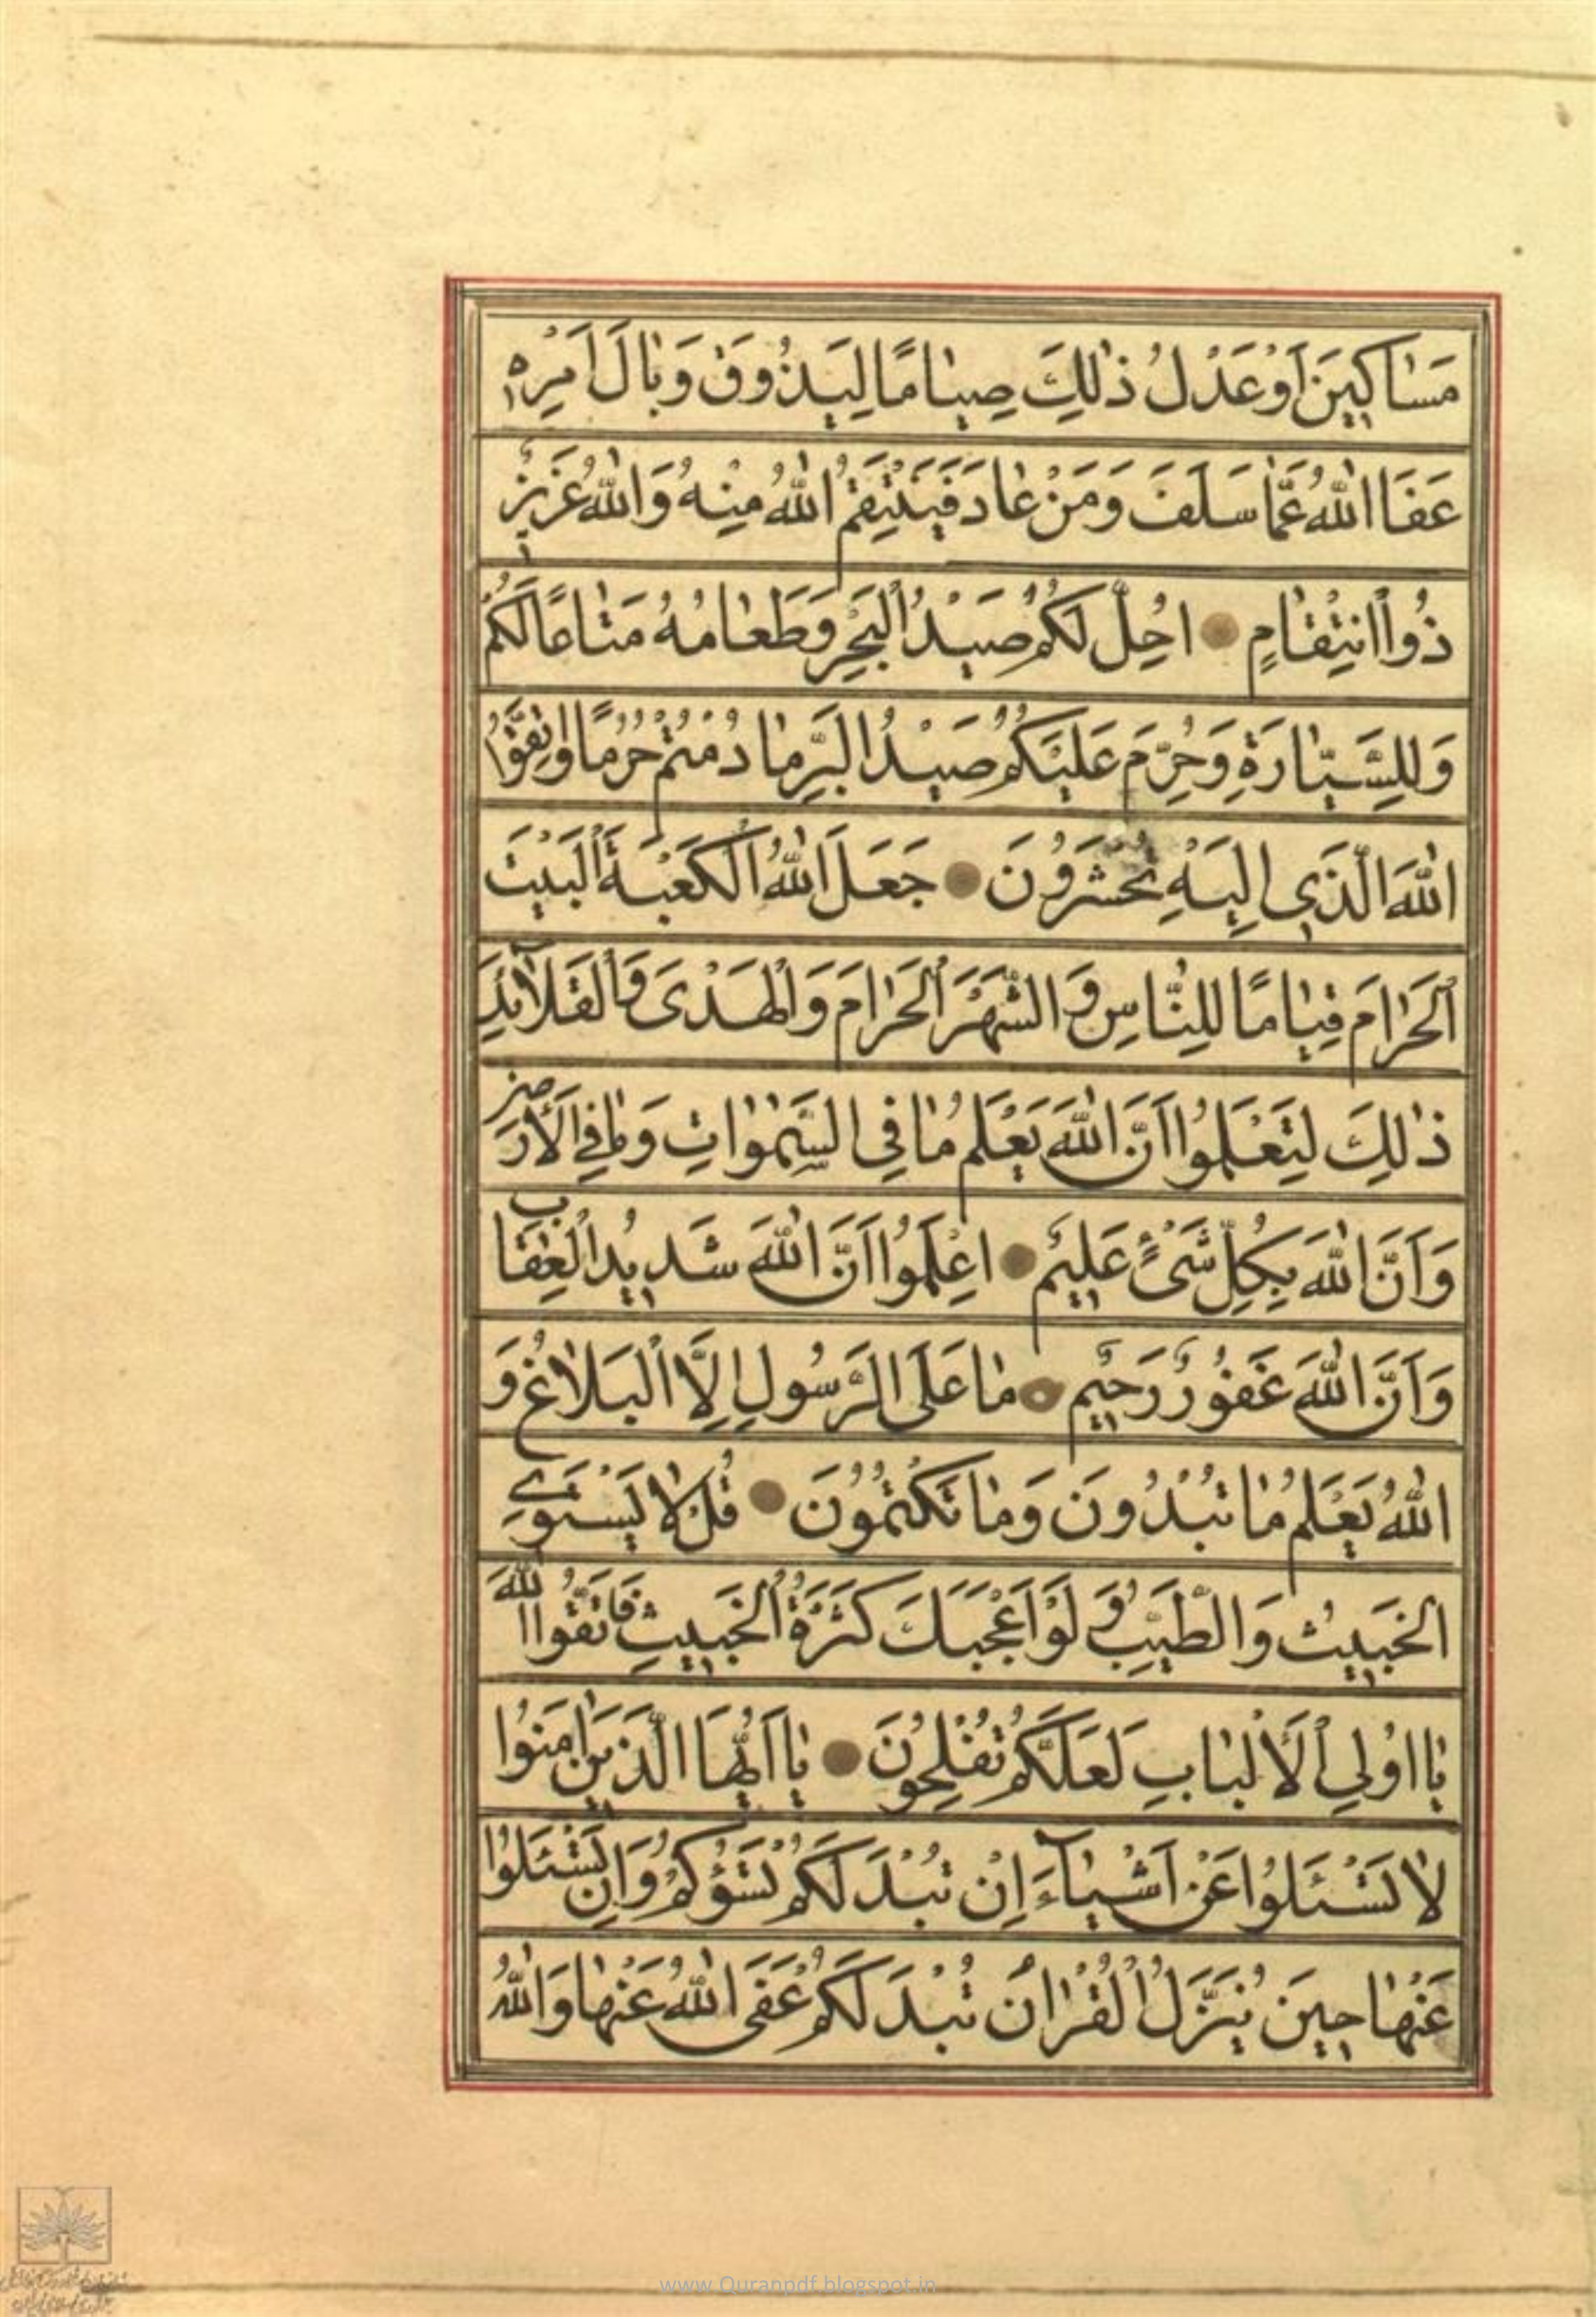 مَسٰاكِينَ اَوْ عَدْلُ ذٰلِكَ صِيٰامًا لِيَذُوقَ وَبٰالَ اَمْرِهِ
عَفَا اللّٰهُ عَمّٰا سَلَفَ وَمَنْ عٰادَ فَيَنْتَقِمُ اللّٰهُ مِنْهُ وَاللّٰهُ عَزِيزٌ
ذُو اانْتِقٰامٍ اُحِلَّ لَكُمْ صَيْدُ الْبَحْرِ وَطَعٰامُهُ مَتٰاعًا لَكُمْ
وَلِلسَّيّٰارَةِ وَحُرِّمَ عَلَيْكُمْ صَيْدُ الْبَرِّ مٰا دُمْتُمْ حُرُمًا وَاتَّقُوا
اللّٰهَ الَّذِي اِلَيْهِ تُحْشَرُونَ جَعَلَ اللّٰهُ الْكَعْبَةَ الْبَيْتَ
الْحَرٰامَ قِيٰامًا لِلنّٰاسِ وَ الشَّهْرَ الْحَرٰامَ وَالْهَدْىَ وَالْقَلاٰۤئِدَ
ذٰلِكَ لِتَعْلَمُوا اَنَّ اللّٰهَ يَعْلَمُ مٰا فِى السَّمٰوٰاتِ وَمٰا فِي الْاَرْضِ
وَاَنَّ اللّٰهَ بِكُلِّ شَىْءٍ عَلِيمٌ اِعْلَمُوا اَنَّ اللّٰهَ شَدِيدُ الْعِقٰابِ
وَاَنَّ اللّٰهَ غَفُورٌ رَحِيمٌ مٰا عَلَى الرَّسُولِ اِلَّا الْبَلاٰغُ وَ
اللّٰهُ يَعْلَمُ مٰا تُبْدُونَ وَمٰا تَكْتُمُونَ قُلْ لاٰ يَسْتَوِي
الْخَبِيثُ وَالطَّيِّبُ وَ لَوْ اَعْجَبَكَ كَثْرَةُ الْخَبِيثِ فَاتَّقُوا اللّٰهَ
يٰا اُولِي الْاَلْبٰابِ لَعَلَّكُمْ تُفْلِحُونَ يٰا اَيُّهَا الَّذِينَ اٰمَنُوا
لاٰ تَسْئَلُوا عَنْ اَشْيٰاۤءَ اِنْ تُبْدَ لَكُمْ تَسُؤْكُمْ وَاِنْ تَسْئَلُوا
عَنْهٰا حِينَ يُنَزَّلُ الْقُرْاٰنُ تُبْدَ لَكُمْ عَفَى اللّٰهُ عَنْهٰا وَاللّٰهُ
www.Quranpdf.blogspot.in